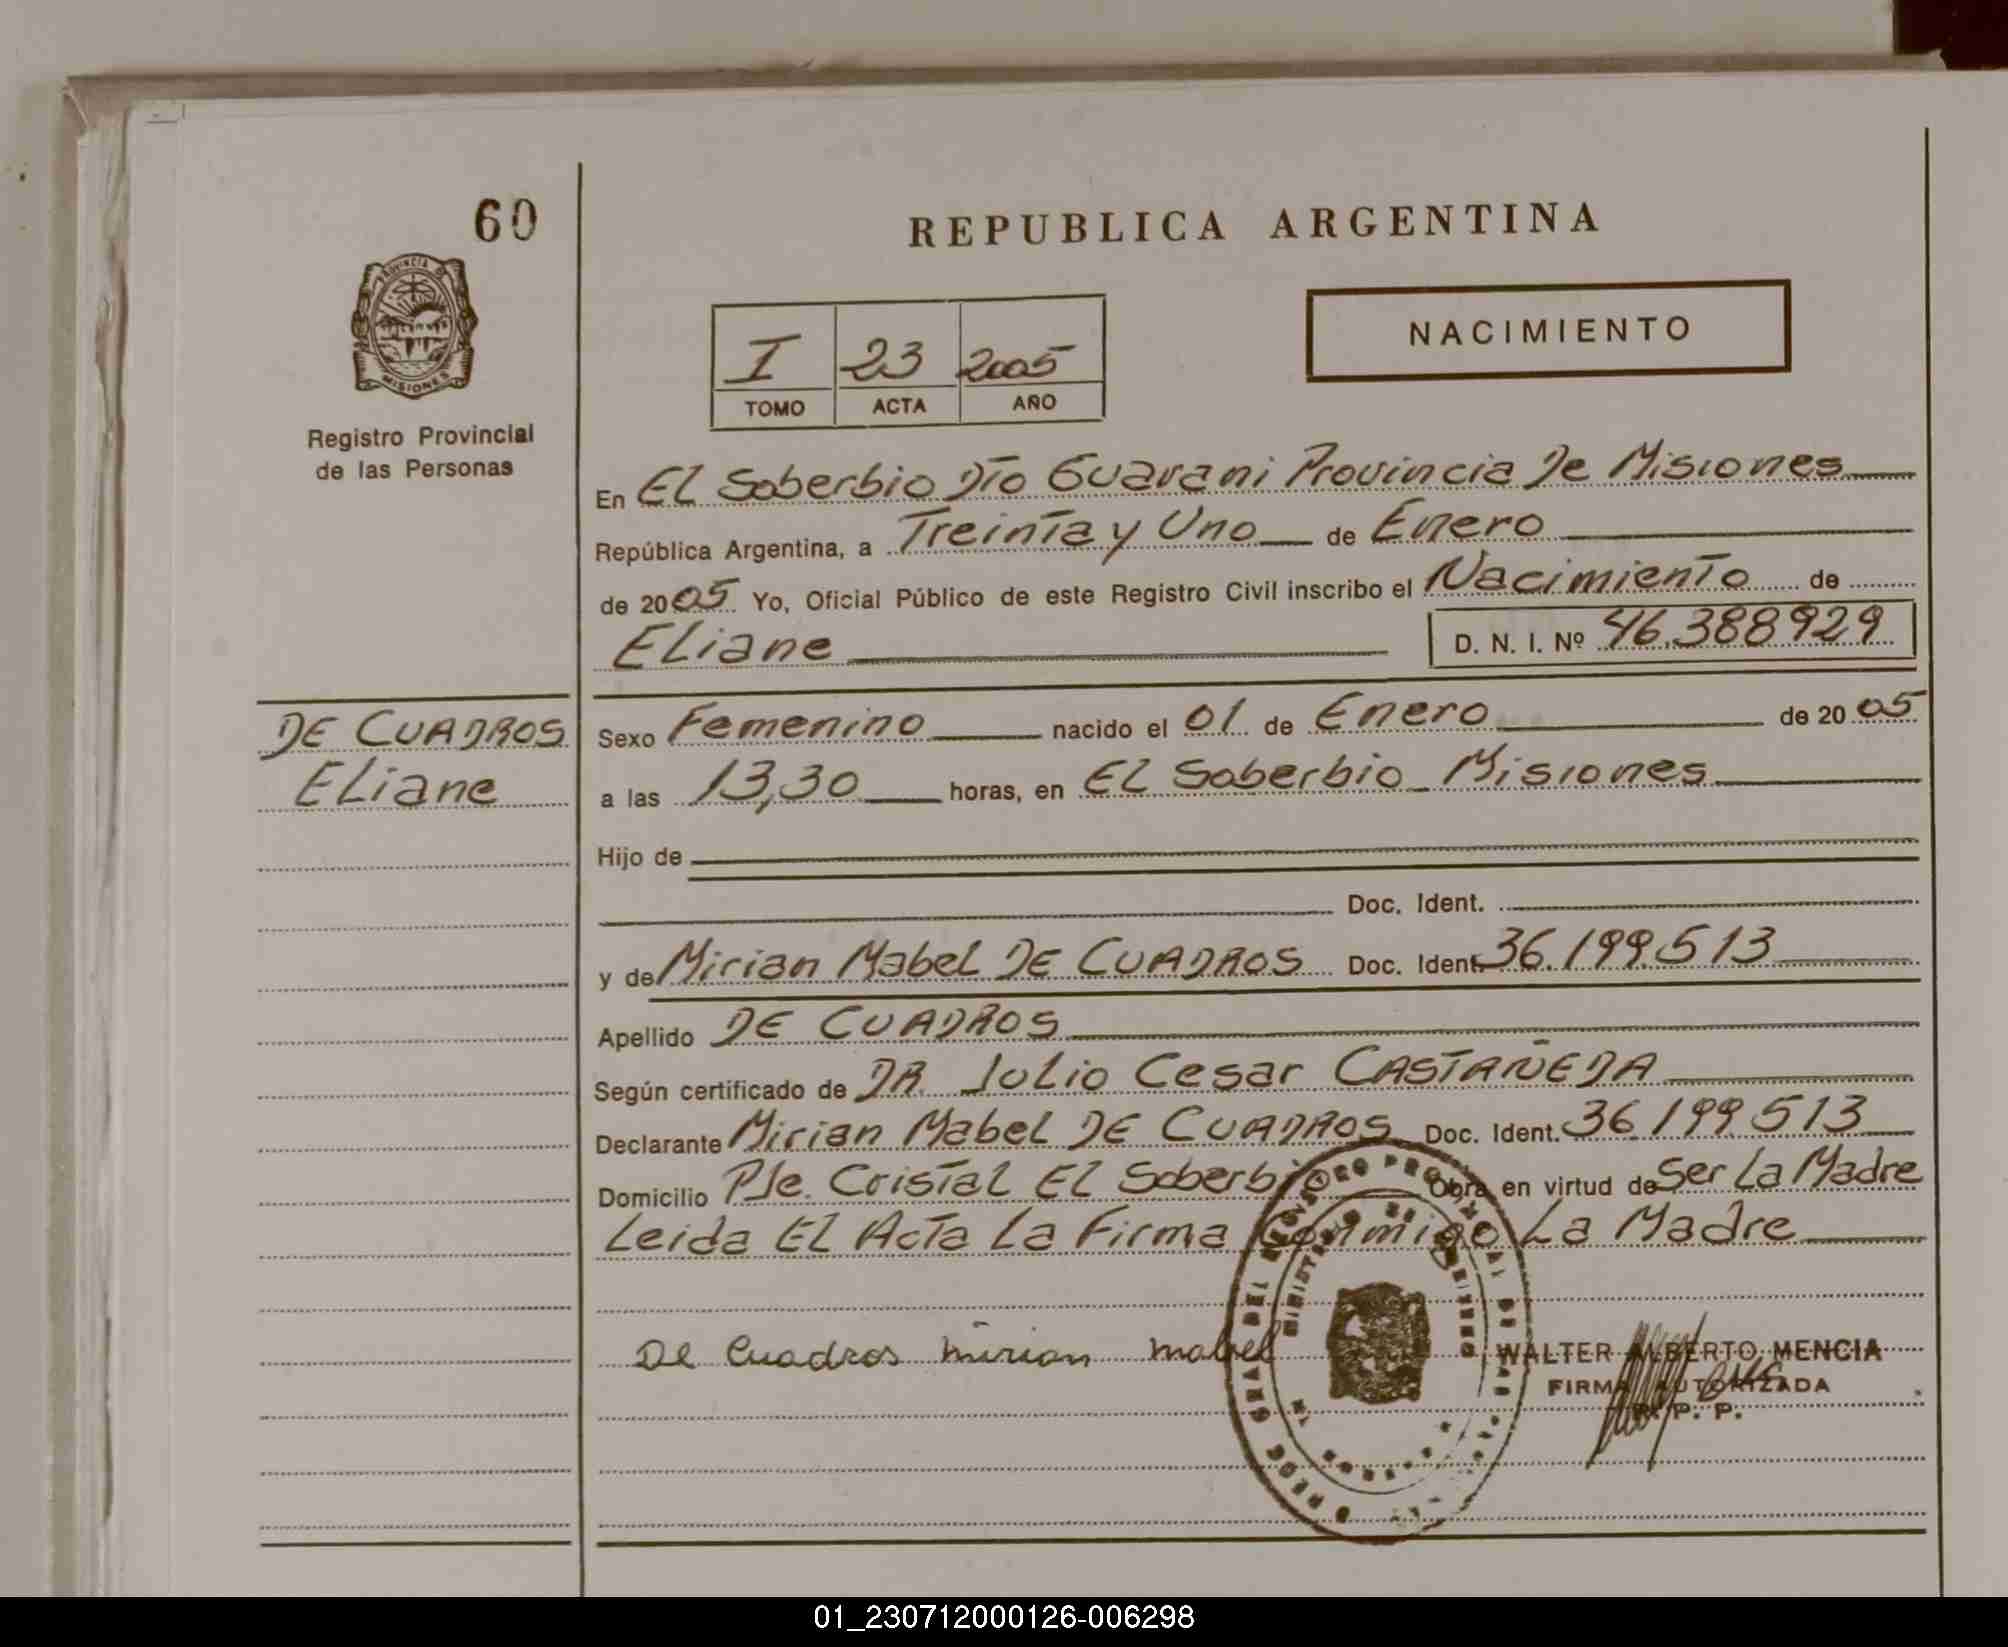 60
REPUBLICA ARGENTINA
PROVINCIA D
MISIONES
Registro Provincial
de las Personas
NACIMIENTO
I 23 2005
TOMO ACTA AÑO
En El Soberbio Dto Guarani Provincia De Misiones
República Argentina, a Treinta y Uno de Enero
de 2005 Yo, Oficial Público de este Registro Civil inscribo el Nacimiento de
Eliane D. N. I. Nº 46.388929
DE CUADROS
Eliane
Sexo Femenino nacido el 01 de Enero de 2005
a las 13,30 horas, en El Soberbio Misiones
Hijo de
Doc. Ident.
y de Mirian Mabel DE CUADROS Doc. Ident. 36.199.513
Apellido DE CUADROS
Según certificado de DR. Julio Cesar CASTAÑEDA
Declarante Mirian Mabel DE CUADROS Doc. Ident. 36.199513
Domicilio Pje. Cristal El Soberbio Obra en virtud de Ser La Madre
Leida El Acta La Firma Conmigo La Madre
De Cuadros Mirian Mabel
WALTER ALBERTO MENCIA
FIRMA AUTORIZADA
R. P. P.
01_230712000126-006298